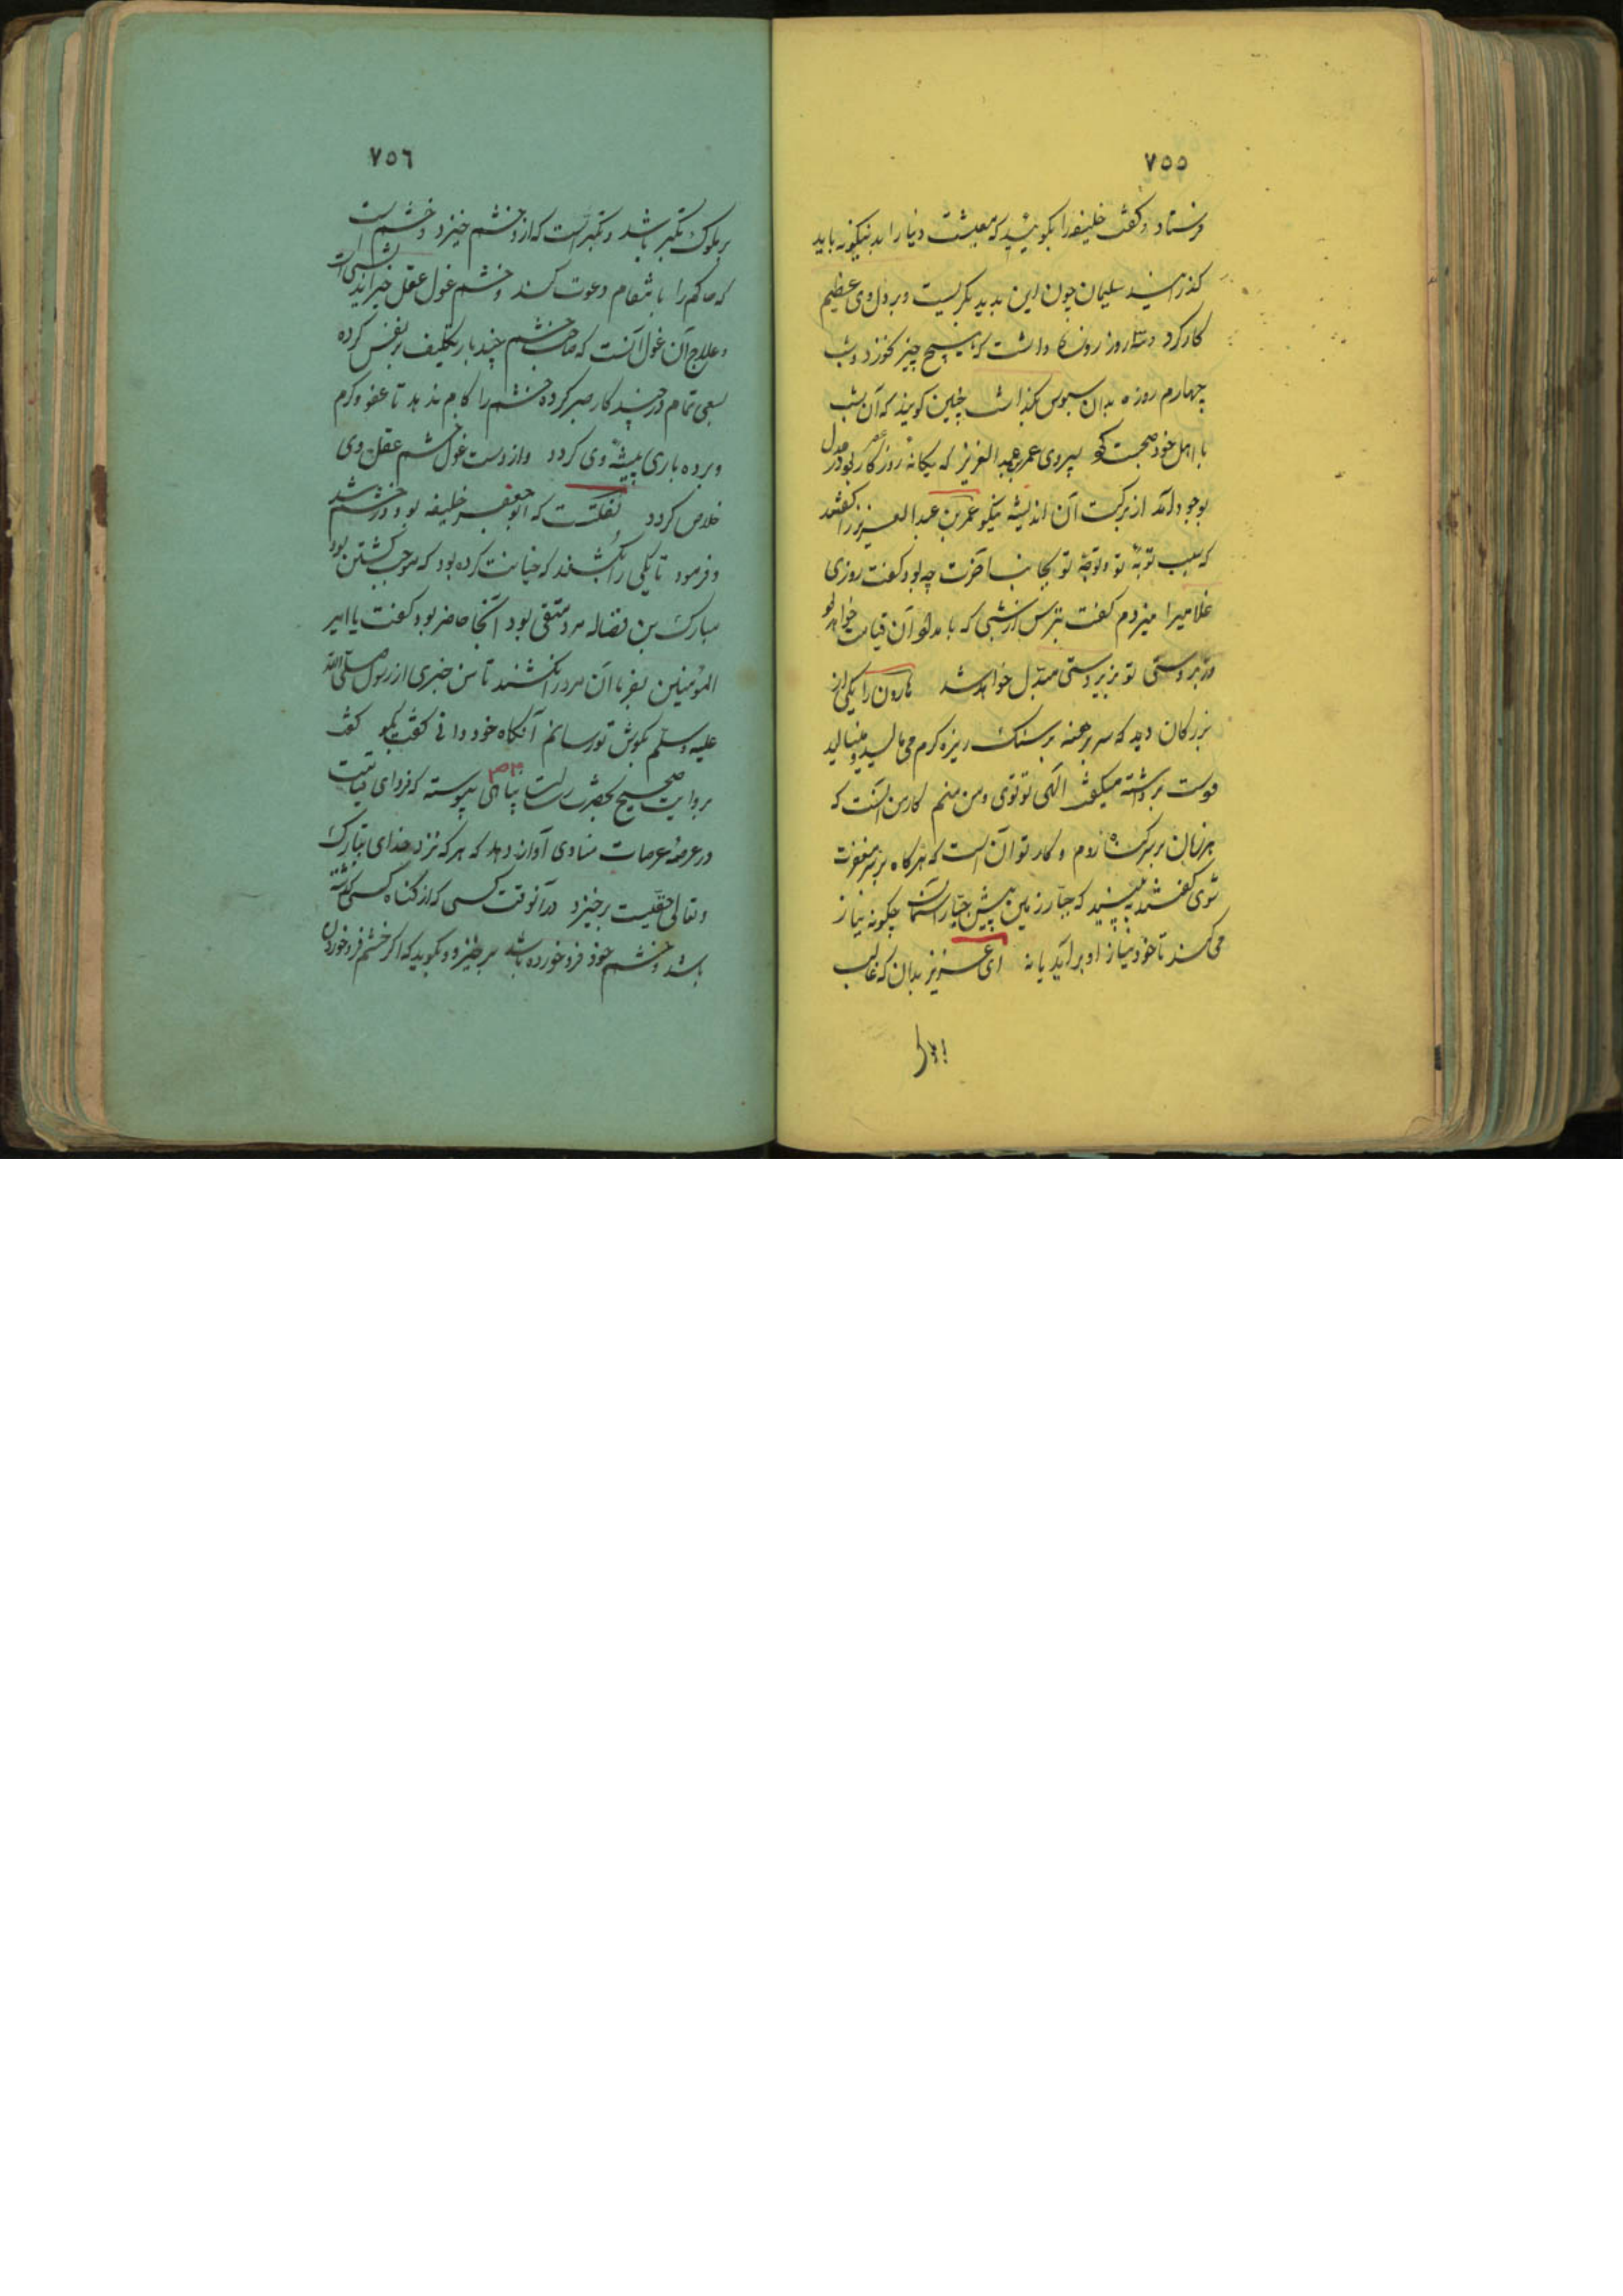 ٧٥٥
فرستاد و گفت خلیفه را بگوئید که معیشت دنیا را بدینگونه باید
گذرانید سلیمان چون این بدید بگریست و بر دل وی عظیم
کار کرد و سه روز روزه داشت که هیچ چیز نخورد و شب
چهارم روزه بدان سبوس بگذاشت چنین گویند که آن شب
با اهل خود صحبت کرد پسر وی عمر عبد العزیز که یگانهٔ روزگار بود در عدل
بوجود آمد از برکت آن اندیشه نیکو عمر بن عبد العزیز را گفتند
که سبب توبهٔ تو و توجه تو بجانب آخرت چه بود گفت روزی
غلامیرا میزدم گفت بترس از شبی که بامداد آن قیامت خواهد بود
و زبردستی تو بزیردستی مبدل خواهد شد هارون را یکی از
بزرگان دید که سر برهنه بر سنگ ریزه گرم می مالید و مینالید
دست برداشته میگفت الهی تو توی و من منم کار من آنست که
هر زمان بر سر گناه روم و کار تو آن است که هر گاه بر سر مغفرت
شوی گفتند ببینید که جبار زمین پیش جبار آسمان چگونه نیاز
می کند تا خود نیاز او بر آید یا نه ای عزیز بدان که غالب
بر ملوک
٧٥٦
بر ملوک تکبر باشد و تکبر است که از و خشم خیزد و خشم است
که حاکم را بانتقام دعوت کند و خشم غول عقل
و علاج آن غول آنست که صاحب خشم چند بار بتکلیف بر نفس کرده
بسعی تمام در چند کار صبر کرده خشم را کام ندهد تا عفو و کرم
و بردباری پیشهٔ وی گردد و از دست غول خشم عقل وی
خلاص گردد نقلست که ابو جعفر خلیفه بود در خشم شد
و فرمود تا یکی را بکشند که خیانت کرده بود که موجب کشتن بود
مبارک بن فضاله مرد متقی بود آنجا حاضر بود گفت یا امیر
المؤمنین بفرما آن مرد را نکشند تا من خبری از رسول صلی الله
علیه وسلم بگوش تو رسانم آنگاه خود دانی گفت بگو گفت
بروایت صحیح بحضرت رسالت پناهی پیوسته که فردای قیامت
در عرصهٔ عرصات منادی آواز دهد که هر که نزد خدای تبارک
و تعالی حقیست برخیزد در آنوقت کسی که از گناه کسی گذشته
باشد و خشم خود فرو خورده باشد برخیزد و بگوید که اگر خشم فرو خوردن